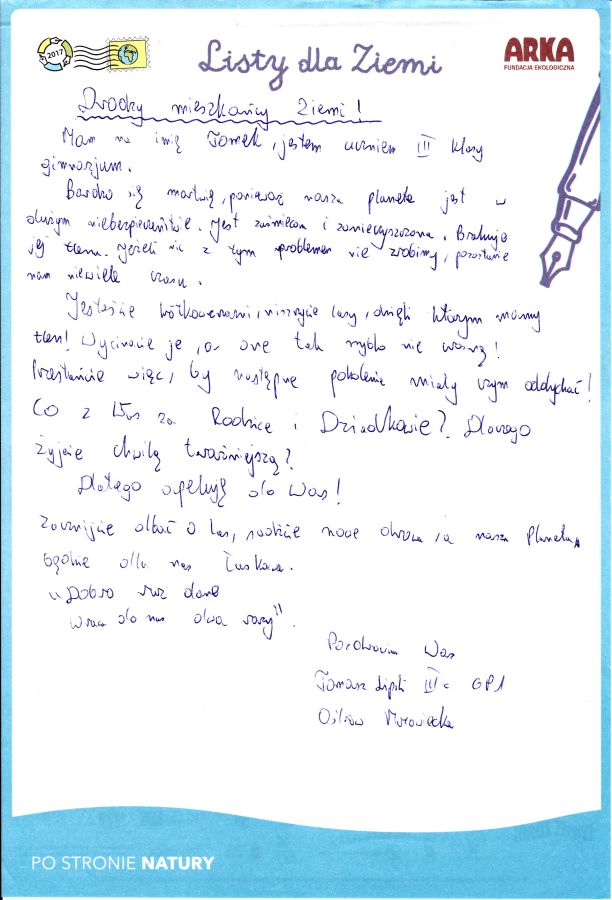 2017
Listy dla Ziemi
ARKA
FUNDACJA EKOLOGICZNA
Drodzy mieszkańcy Ziemi!
Mam na imię Tomek, jestem uczniem III klasy
gimnazjum.
Bardzo się martwię, ponieważ nasza planeta jest w
dużym niebezpieczeństwie. Jest zaśmiecona i zanieczyszczona. Brakuje
jej tlenu. Jeżeli nic z tym problemem nie zrobimy, pozostanie
nam niewiele czasu.
Jesteście krótkowzroczni, niszczycie lasy, dzięki którym mamy
tlen! Wycinacie je, a one tak szybko nie wzrosną!
Przestańcie więc, by następne pokolenie miały czym oddychać!
Co z Was za Rodzice i Dziadkowie? Dlaczego
żyjecie chwilą teraźniejszą?
Dlatego apeluję do Was!
Zacznijcie dbać o las, sadźcie nowe drzewa, a nasza Planeta
będzie dla nas łaskawa.
"Dobro raz dane
wraca do nas dwa razy".
Pozdrawiam Was
Tomasz Lipski III c GP1
Ostrów Mazowiecka
PO STRONIE NATURY